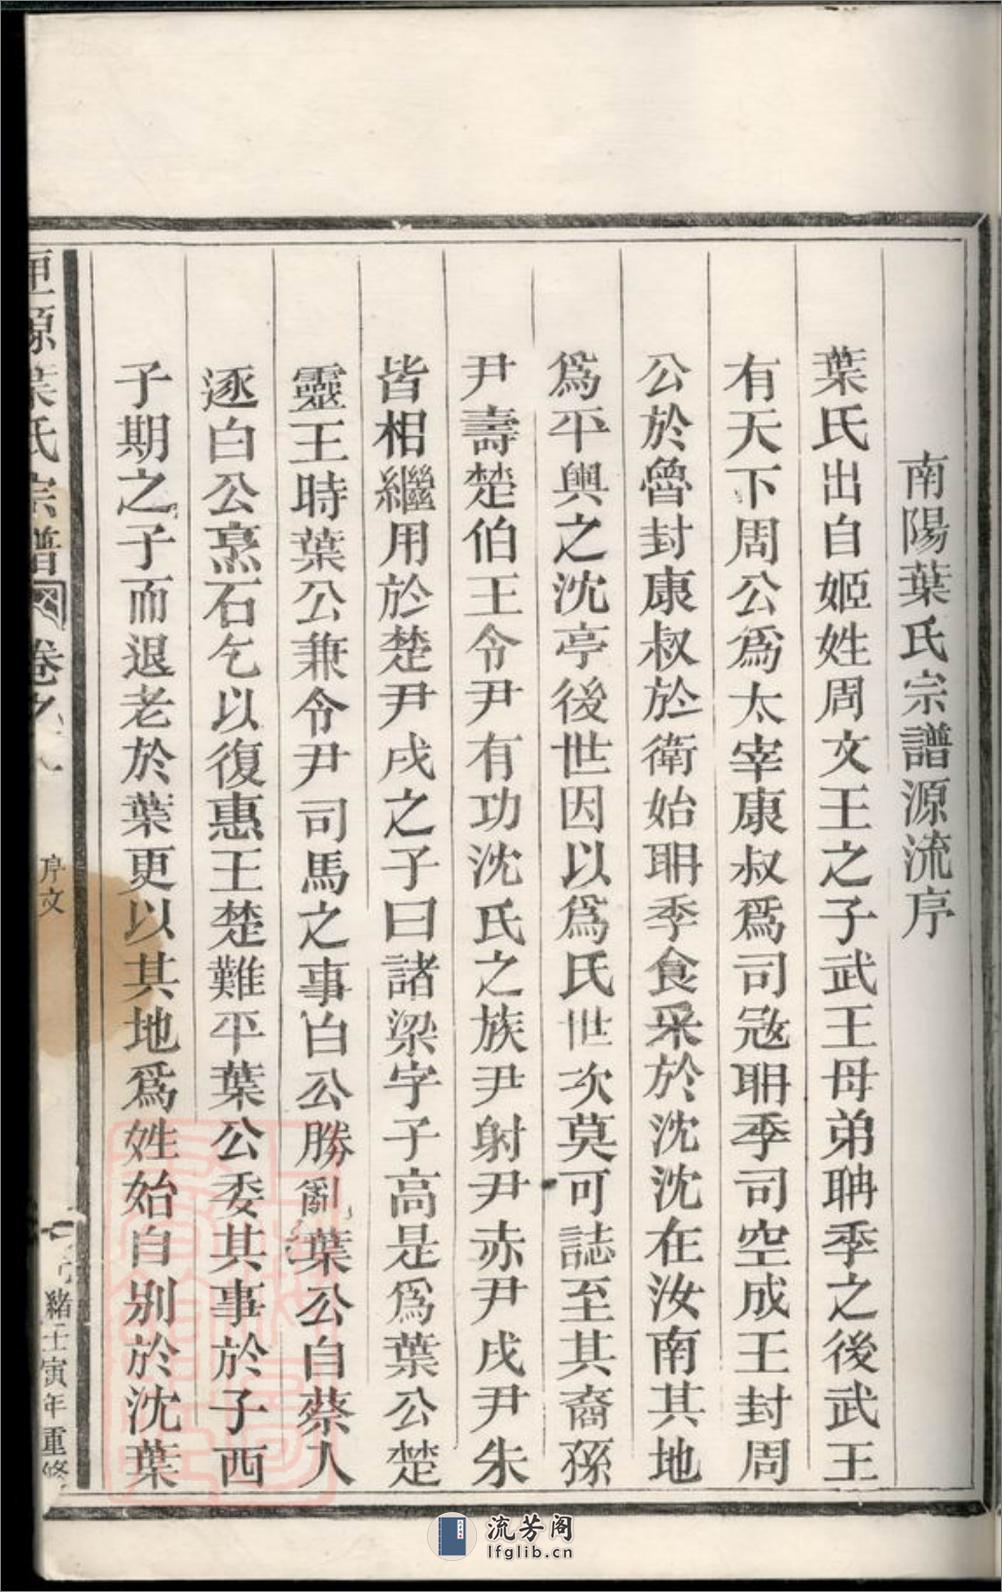 南陽葉氏宗譜源流序
葉氏出自姬姓周文王之子武王母弟聃季之後武王
有天下周公爲太宰康叔爲司寇聃季司空成王封周
公於魯封康叔於衛始聃季食采於沈沈在汝南其地
爲平輿之沈亭後世因以爲氏世次莫可誌至其裔孫
尹壽楚伯王令尹有功沈氏之族尹射尹赤尹戌尹朱
皆相繼用於楚尹戌之子曰諸梁字子高是爲葉公楚
靈王時葉公兼令尹司馬之事白公勝亂葉公自蔡入
逐白公烹石乞以復惠王楚難平葉公委其事於子西
子期之子而退老於葉更以其地爲姓始自别於沈葉
源葉氏宗譜 卷之 序文 緒壬寅年重修
流芳阁
lfglib.cn